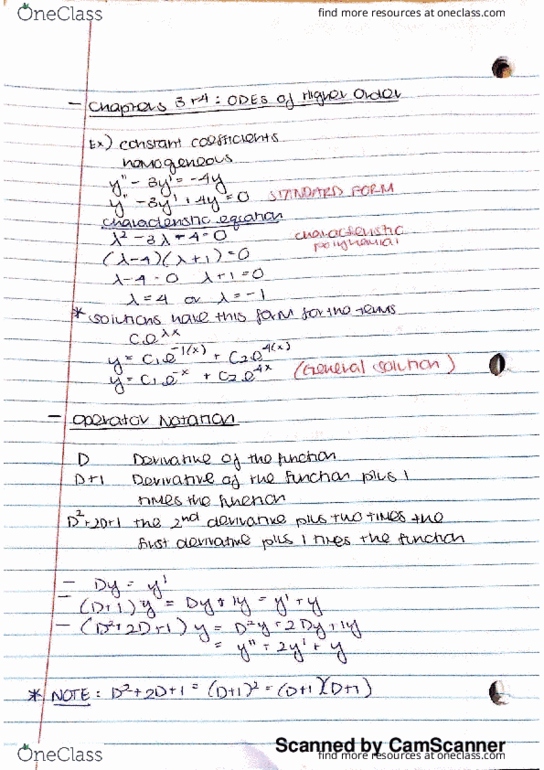 OneClass
find more resources at oneclass.com
- Chapters 3+4: ODEs of Higher Order
Ex) constant coefficients
homogeneous
y" - 3y' = -4y
y" - 3y' + 4y = 0 STANDARD FORM
characteristic equation
λ² - 3λ + 4 = 0 characteristic
polynomial
(λ-4)(λ+1) = 0
λ-4 = 0 λ+1 = 0
λ = 4 or λ = -1
* solutions have this form for the terms
Ce^λx
y = C₁e^-1(x) + C₂e^4(x)
y = C₁e^-x + C₂e^4x (General solution)
- Operator Notation
D Derivative of the function
D+1 Derivative of the function plus 1
times the function
D²+2D+1 the 2nd derivative plus two times the
first derivative plus 1 times the function
- Dy = y'
- (D+1)y = Dy + 1y = y' + y
- (D²+2D+1)y = D²y + 2Dy + 1y
= y" + 2y' + y
* NOTE: D²+2D+1 = (D+1)² = (D+1)(D+1)
Scanned by CamScanner
OneClass
find more resources at oneclass.com